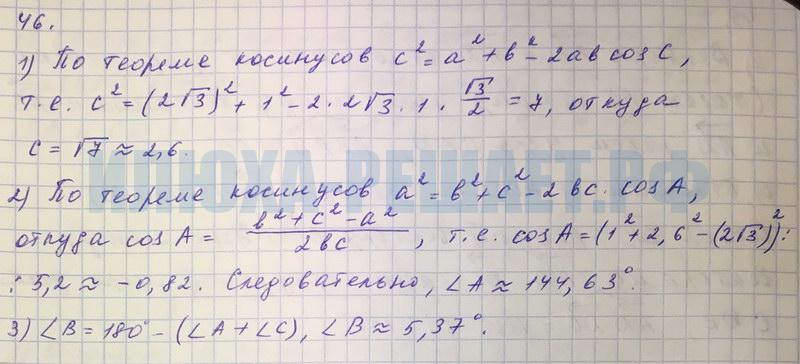 46.
1) По теореме косинусов c² = a² + b² - 2ab cos C,
т.е. c² = (2√3)² + 1² - 2 · 2√3 · 1 · √3/2 = 7, откуда
c = √7 ≈ 2,6.
ИЛЮХА-РЕШАЕТ.РФ
2) По теореме косинусов a² = b² + c² - 2bc · cos A,
откуда cos A = (b² + c² - a²)/2bc, т.е. cos A = (1² + 2,6² - (2√3)²) :
: 5,2 ≈ -0,82. Следовательно, ∠A ≈ 144,63°.
3) ∠B = 180° - (∠A + ∠C), ∠B ≈ 5,37°.